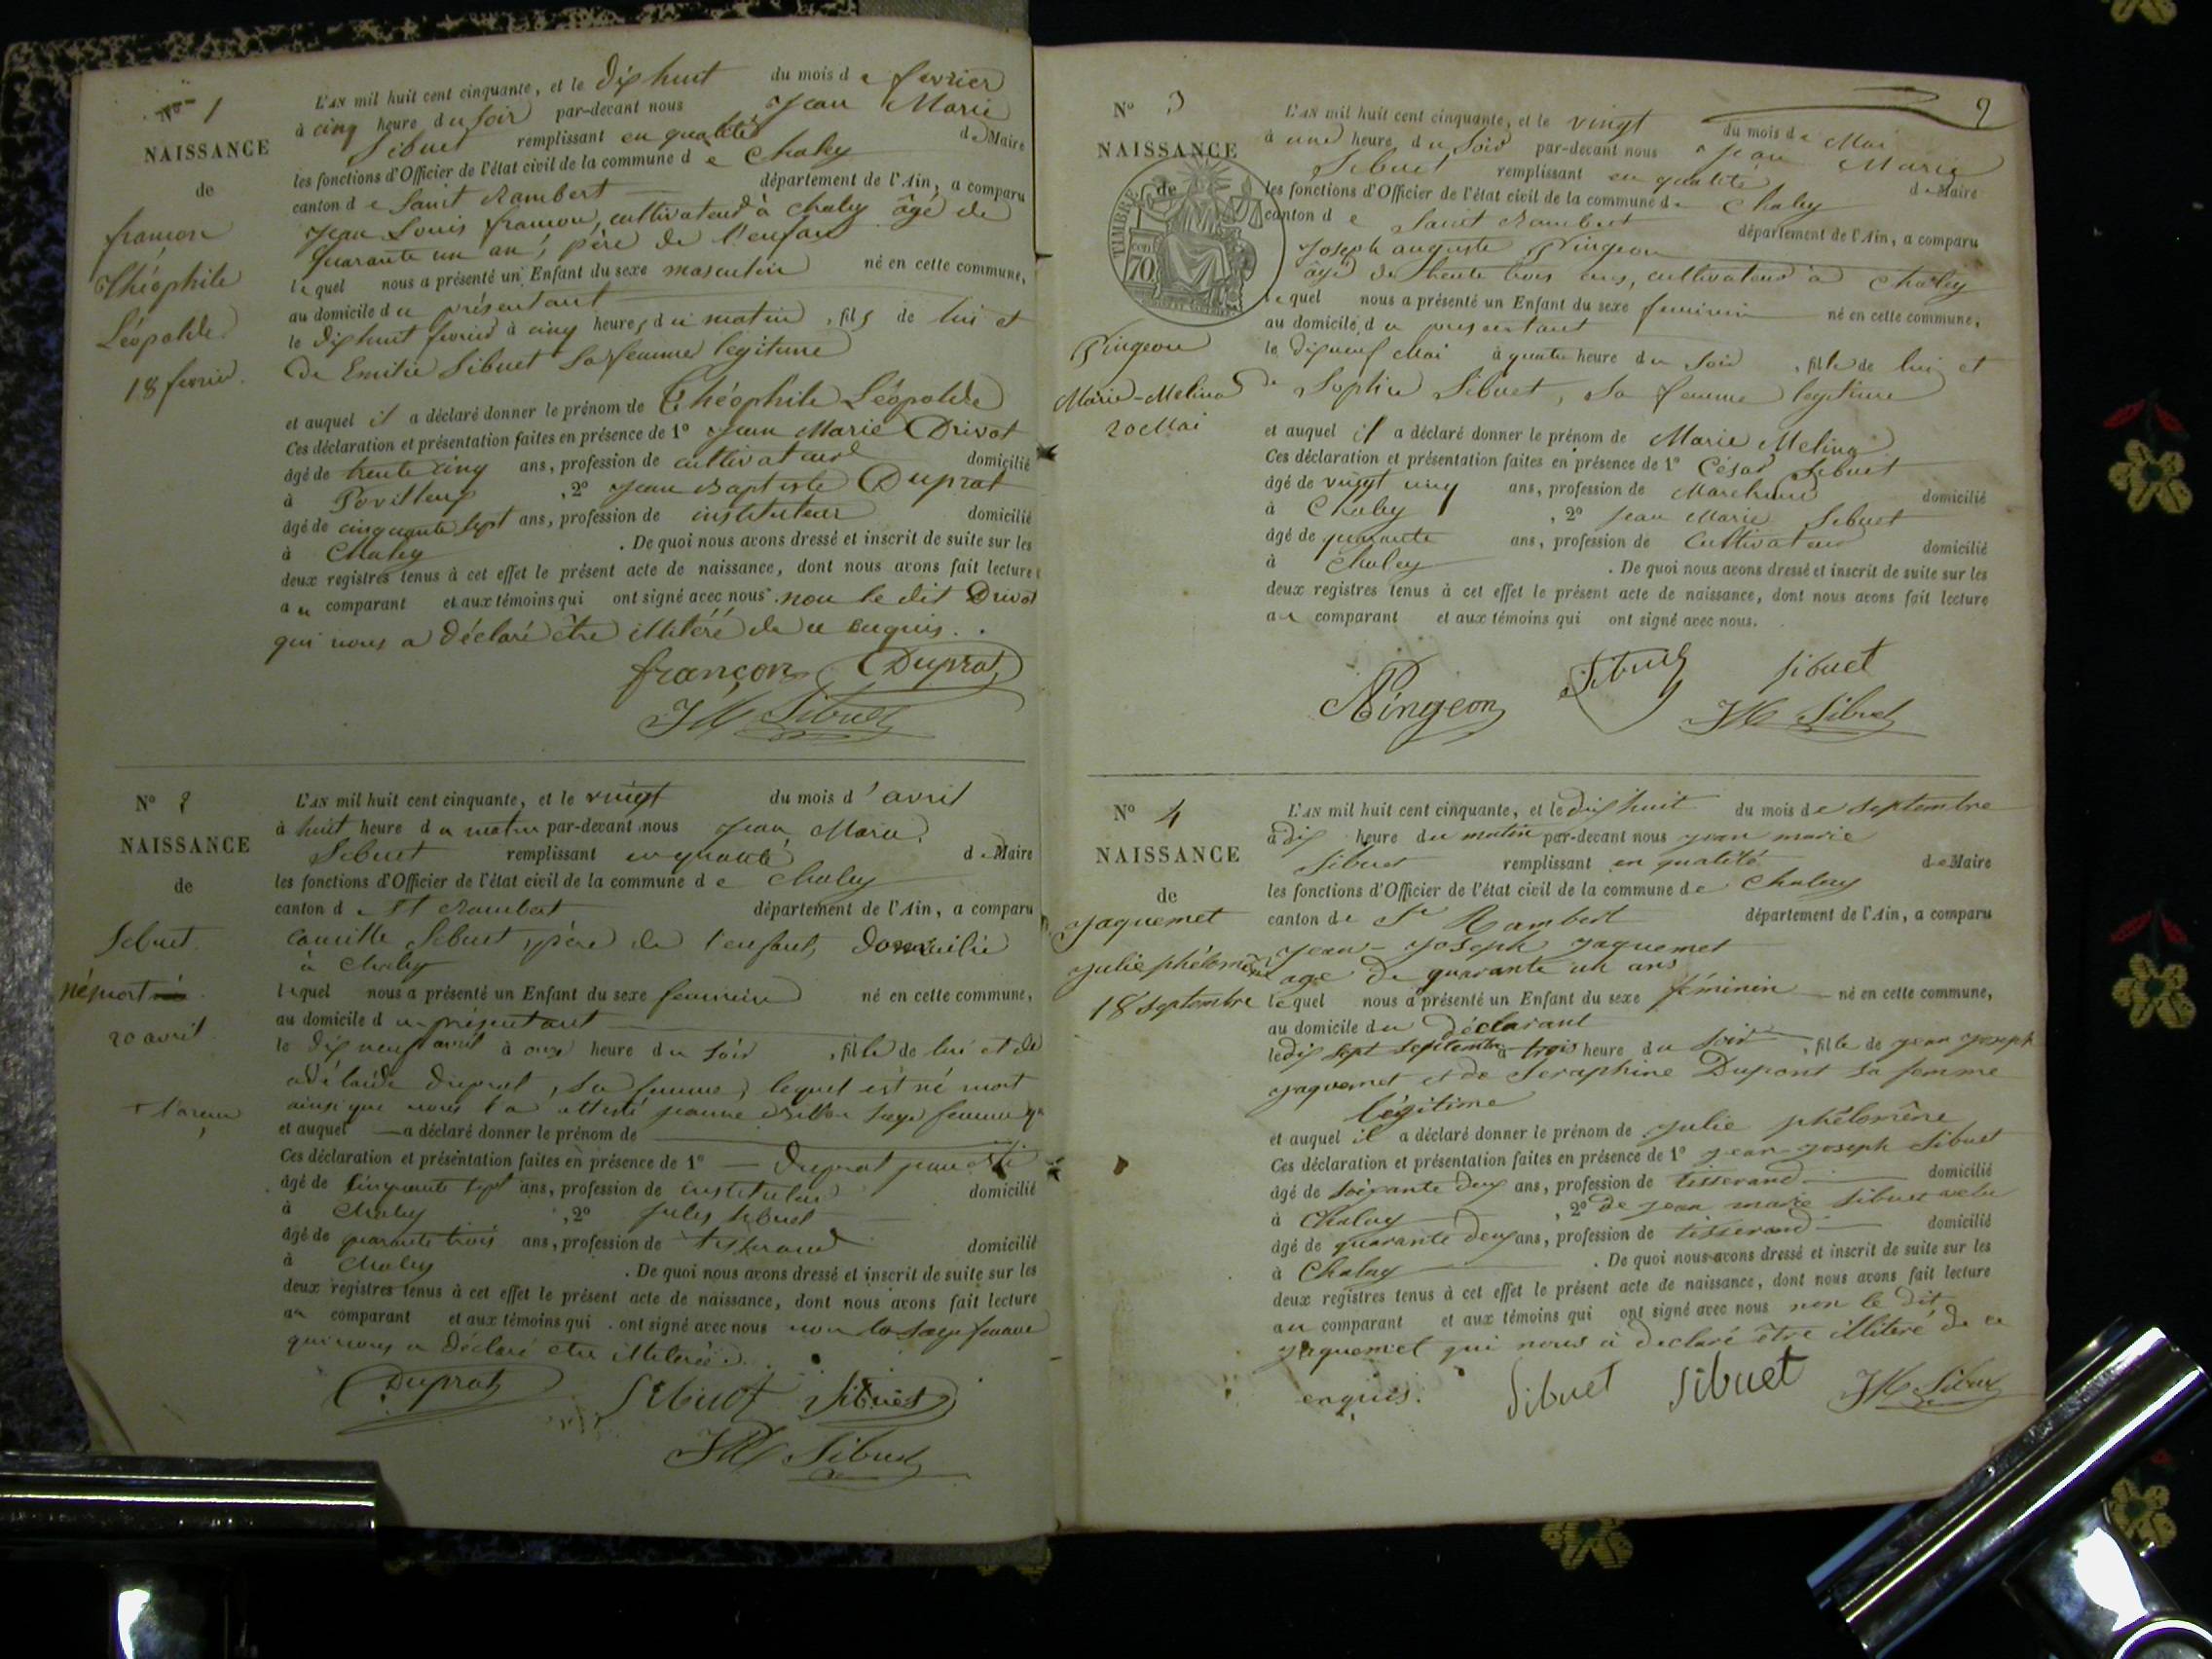 N° 1
NAISSANCE
de
françon
Théophile
Léopolde
18 fevrier.
L'AN mil huit cent cinquante, et le dix huit du mois de fevrier
à cinq heure du soir par-devant nous Jean Marie
Sibuet remplissant en qualité de Maire
les fonctions d'Officier de l'état civil de la commune de Chaley
canton de Saint Rambert département de l'Ain, a comparu
Jean Louis françon, cultivateur à Chaley âgé de
quarante un an, père de l'enfant
lequel nous a présenté un Enfant du sexe masculin né en cette commune,
au domicile du présentant
le dix huit fevrier à cinq heures du matin, fils de lui et
de Emilie Sibuet sa femme legitime
et auquel il a déclaré donner le prénom de Théophile Léopolde
Ces déclaration et présentation faites en présence de 1° Jean Marie Drivot
âgé de trente cinq ans, profession de cultivateur domicilié
à , 2° Jean Baptiste Duprat
âgé de cinquante sept ans, profession de instituteur domicilié
à Chaley . De quoi nous avons dressé et inscrit de suite sur les
deux registres tenus à cet effet le présent acte de naissance, dont nous avons fait lecture
au comparant et aux témoins qui ont signé avec nous non le dit Drivot
qui nous a déclaré être illitéré de ce enquis.
françon Duprat
JM Sibuet
N° 2
NAISSANCE
de
Sibuet.
né mort né
20 avril
L'AN mil huit cent cinquante, et le vingt du mois d'avril
à huit heure du matin par-devant nous Jean Marie
Sibuet remplissant en qualité de Maire
les fonctions d'Officier de l'état civil de la commune de Chaley
canton de St Rambert département de l'Ain, a comparu
Camille Sibuet, père de l'enfant, domicilié
à Chaley
lequel nous a présenté un Enfant du sexe feminin né en cette commune,
au domicile du présentant
le dix neuf avril à onze heure du soir, fille de lui et de
adélaïde duprat, sa femme, lequel est né mort
ainsi que nous l'a attesté jeanne sage femme
et auquel a déclaré donner le prénom de
Ces déclaration et présentation faites en présence de 1° Duprat jean Bte
âgé de Cinquante sept ans, profession de instituteur domicilié
à Chaley , 2° jules Sibuet
âgé de quarante trois ans, profession de tisserand domicilié
à Chaley . De quoi nous avons dressé et inscrit de suite sur les
deux registres tenus à cet effet le présent acte de naissance, dont nous avons fait lecture
au comparant et aux témoins qui ont signé avec nous non la sage femme
qui nous a déclaré être illitérée.
Duprat Sibuet Sibuet
JM Sibuet
2
N° 3
NAISSANCE
de
TIMBRE
70
Pingeon
Marie-Melina
20 Mai
L'AN mil huit cent cinquante, et le vingt du mois de Mai
à une heure du soir par-devant nous Jean Marie
Sibuet remplissant en qualité de Maire
les fonctions d'Officier de l'état civil de la commune de Chaley
canton de Saint Rambert département de l'Ain, a comparu
Joseph auguste Pingeon
âgé de trente trois ans, cultivateur à Chaley
lequel nous a présenté un Enfant du sexe feminin né en cette commune,
au domicile du présentant
le dix neuf Mai à quatre heure du soir, fille de lui et
de Sophie Sibuet, sa femme legitime
et auquel il a déclaré donner le prénom de Marie Melina
Ces déclaration et présentation faites en présence de 1° César Sibuet
âgé de vingt cinq ans, profession de Marchand domicilié
à Chaley , 2° Jean Marie Sibuet
âgé de quarante ans, profession de Cultivateur domicilié
à Chaley . De quoi nous avons dressé et inscrit de suite sur les
deux registres tenus à cet effet le présent acte de naissance, dont nous avons fait lecture
au comparant et aux témoins qui ont signé avec nous.
Pingeon Sibuet Sibuet
JM Sibuet
N° 4
NAISSANCE
de
Jaquemet
Julie phélomène
18 Septembre
L'AN mil huit cent cinquante, et le dix huit du mois de Septembre
à dix heure du matin par-devant nous jean marie
Sibuet remplissant en qualité de Maire
les fonctions d'Officier de l'état civil de la commune de Chaley
canton de St Rambert département de l'Ain, a comparu
jean-joseph jaquemet
age de quarante un ans
lequel nous a présenté un Enfant du sexe féminin né en cette commune,
au domicile du déclarant
le dix sept septembre à trois heure du soir, fille de jean joseph
jaquemet et de Seraphine Dupont sa femme
légitime
et auquel il a déclaré donner le prénom de julie phélomène
Ces déclaration et présentation faites en présence de 1° jean-joseph Sibuet
âgé de soixante deux ans, profession de tisserand domicilié
à Chaley , 2° de jean marie Sibuet
âgé de quarante deux ans, profession de tisserand domicilié
à Chaley . De quoi nous avons dressé et inscrit de suite sur les
deux registres tenus à cet effet le présent acte de naissance, dont nous avons fait lecture
au comparant et aux témoins qui ont signé avec nous non le dit
jaquemet qui nous à declaré être illiteré de ce
enquis.
Sibuet Sibuet JM Sibuet